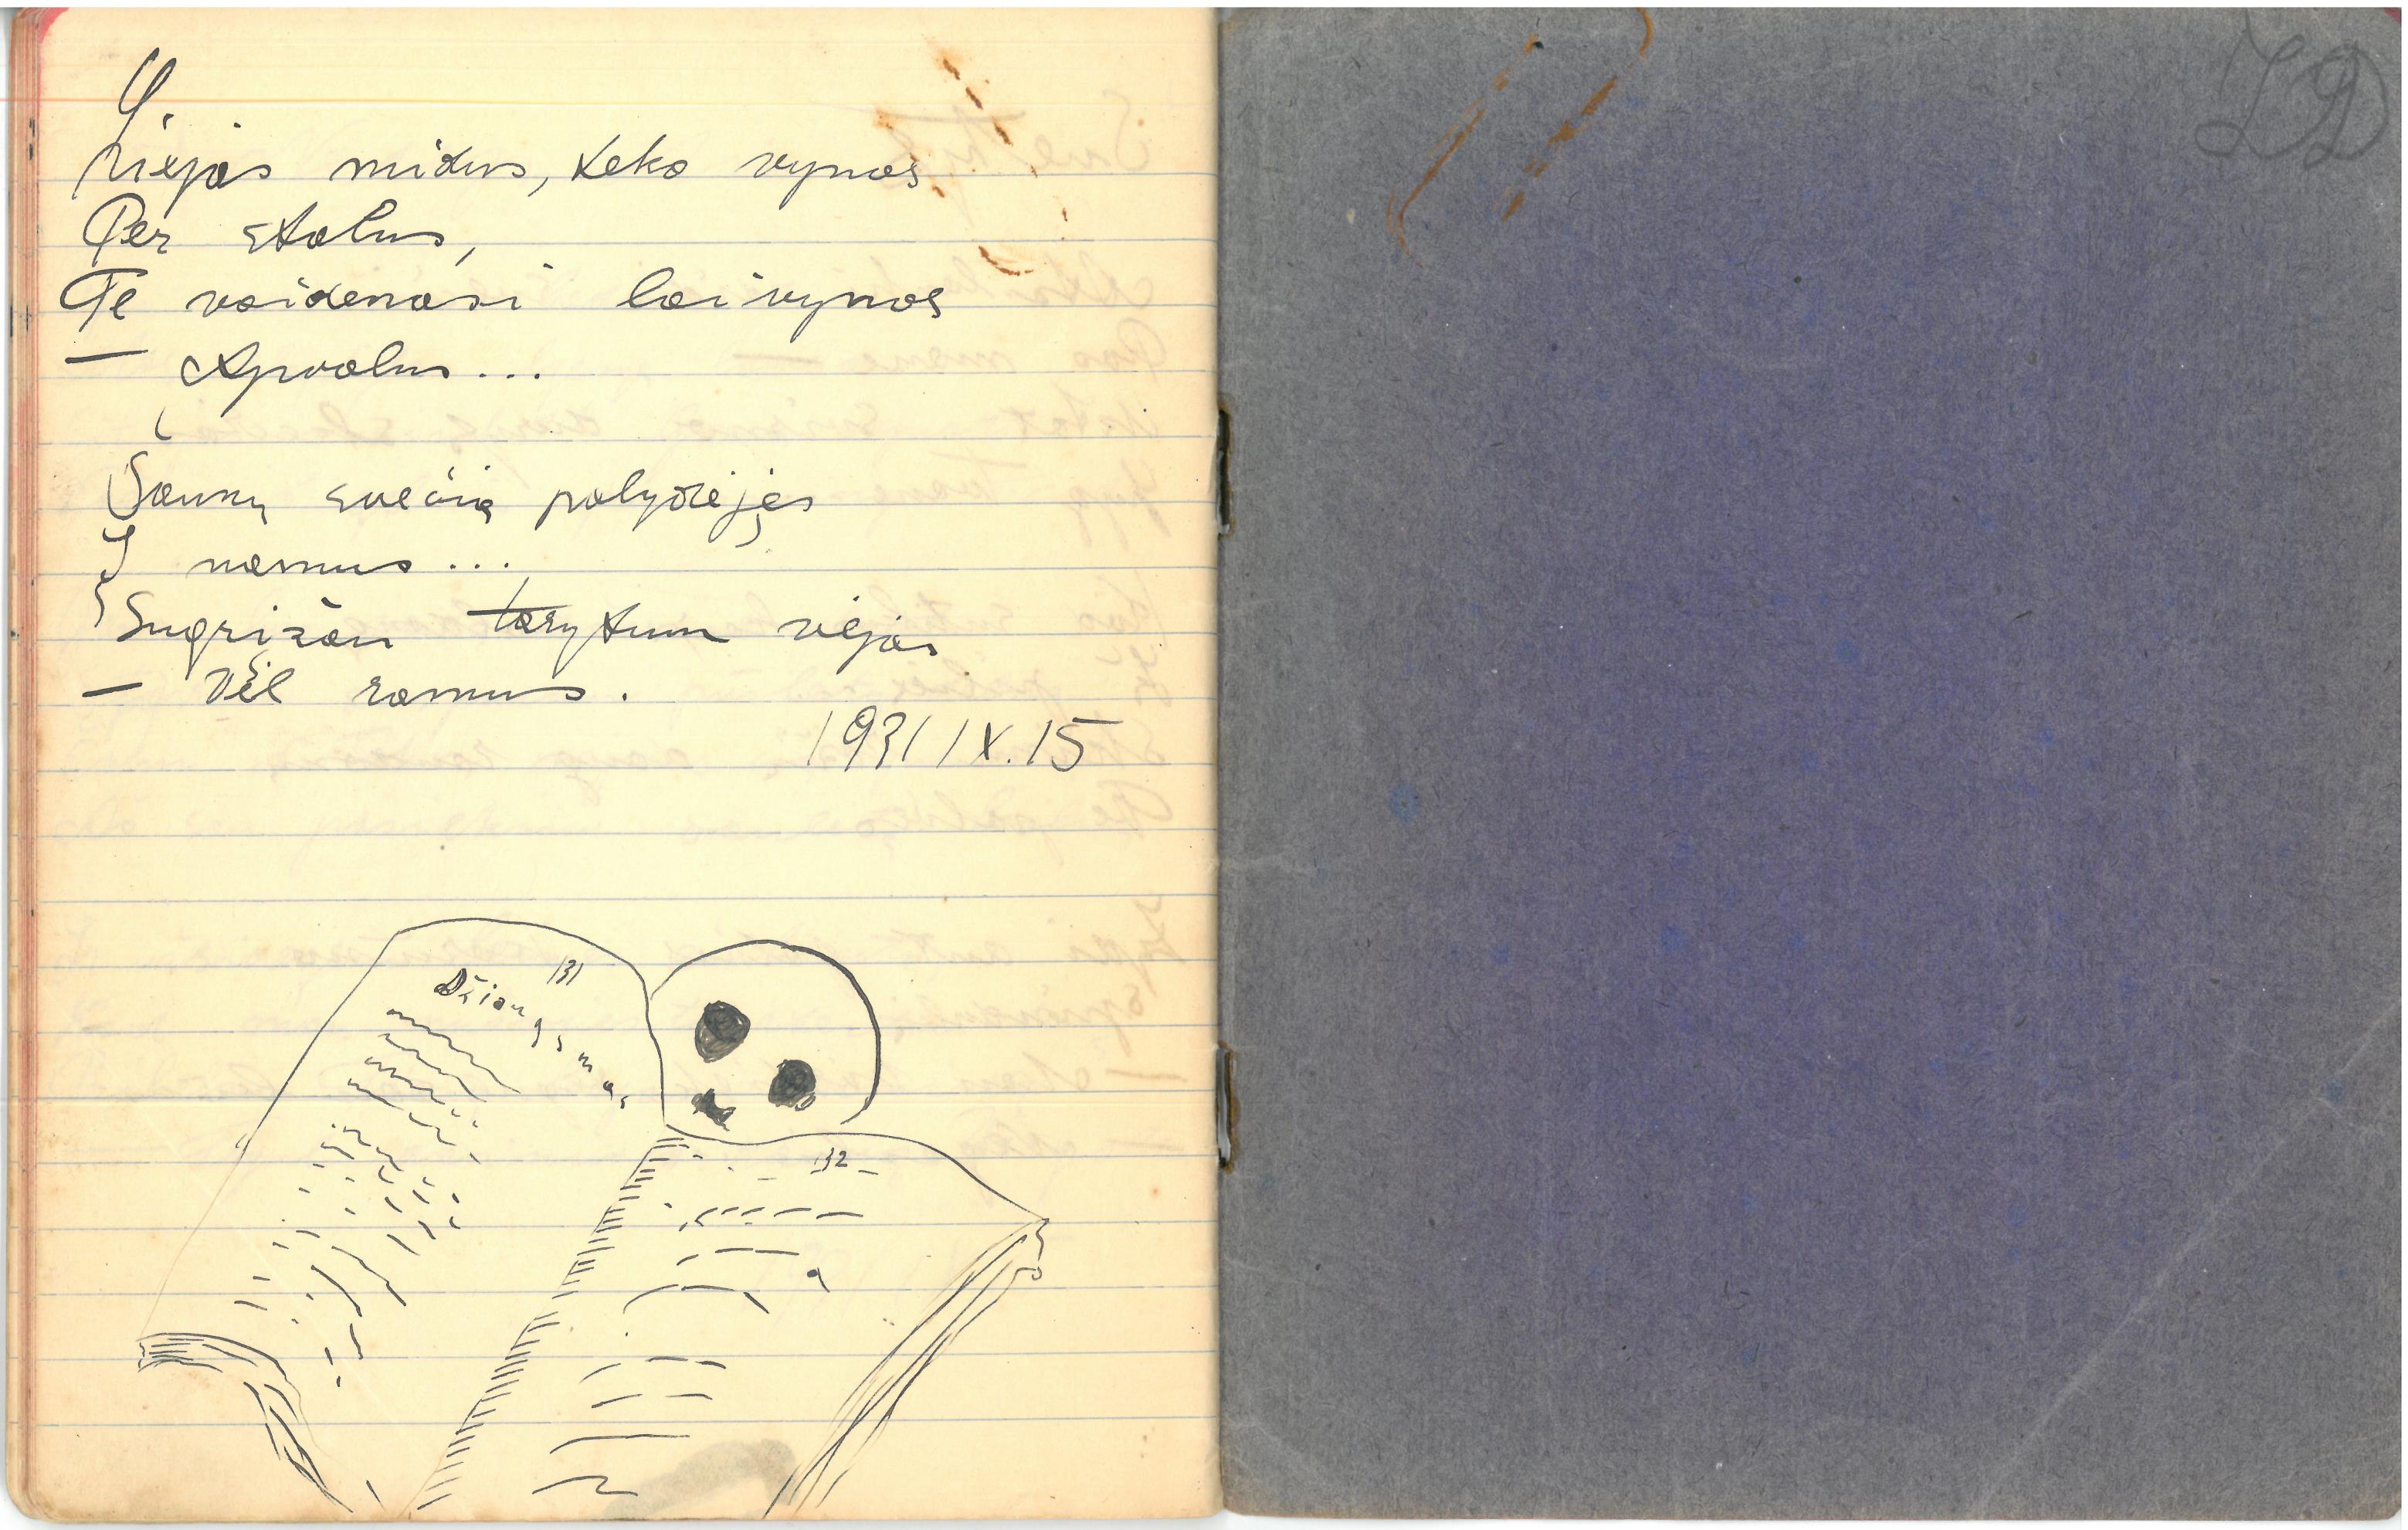 Liejos midus, teko vynas
Per stalus,
Te vaidenasi laivynas
— Apvalus...
Šaunų svečią palydėjęs
Į namus...
Sugrįžau tarytum vėjas
— Vėl ramus.
1931 IX.15
131
Džiaugsmas
132